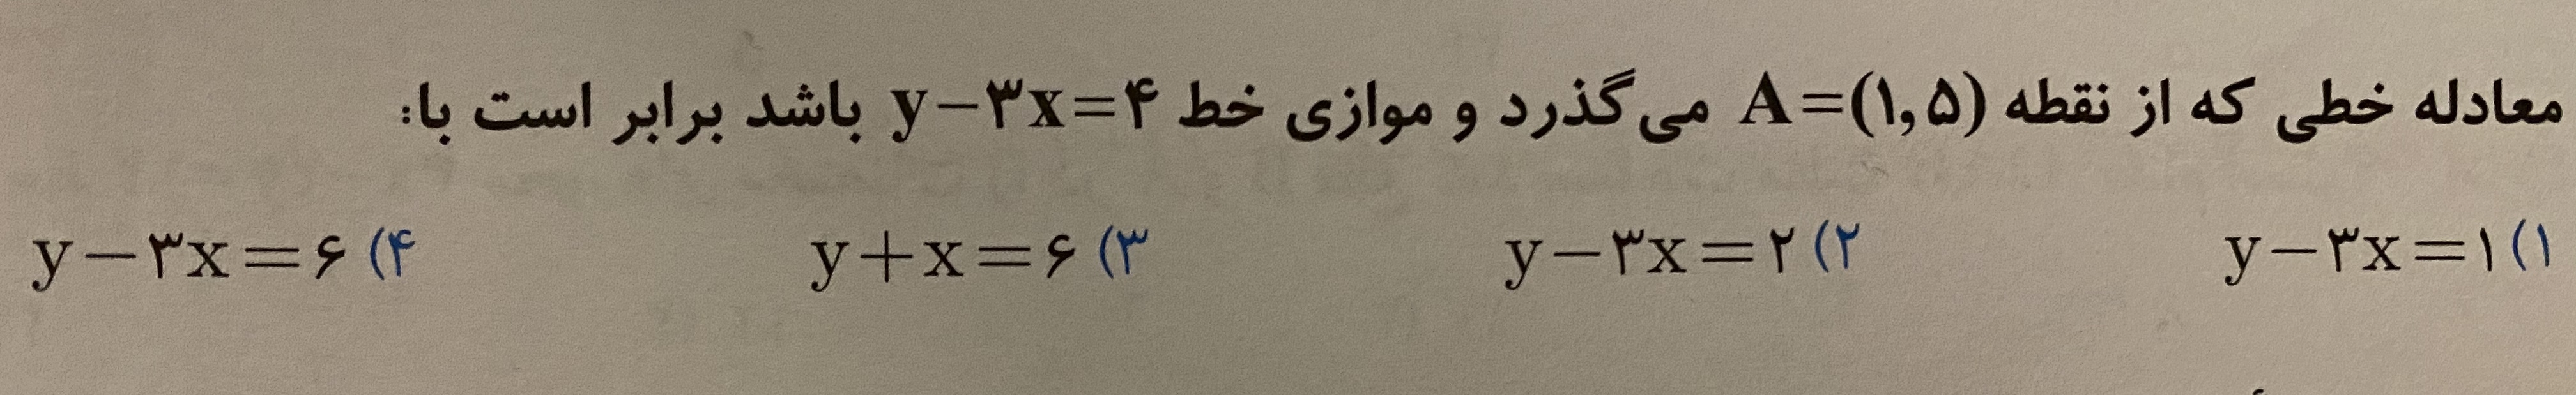 معادله خطی که از نقطه A=(۱,۵) می‌گذرد و موازی خط y−۳x=۴ باشد برابر است با:
۱) y−۳x=۱ ۲) y−۳x=۲ ۳) y+x=۶ ۴) y−۳x=۶